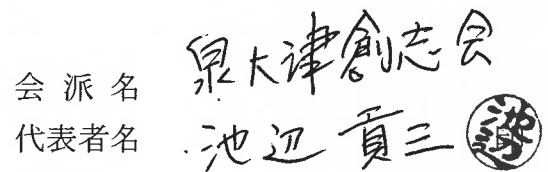 会派名 泉大津創志会
代表者名 池辺貢三